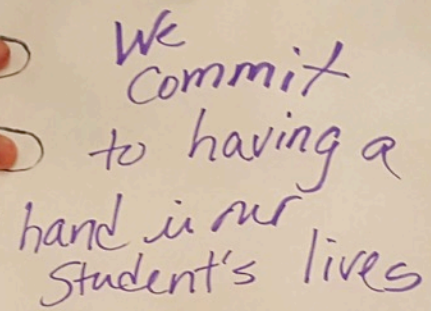 We
Commit
to having a
hand in our
Student's lives